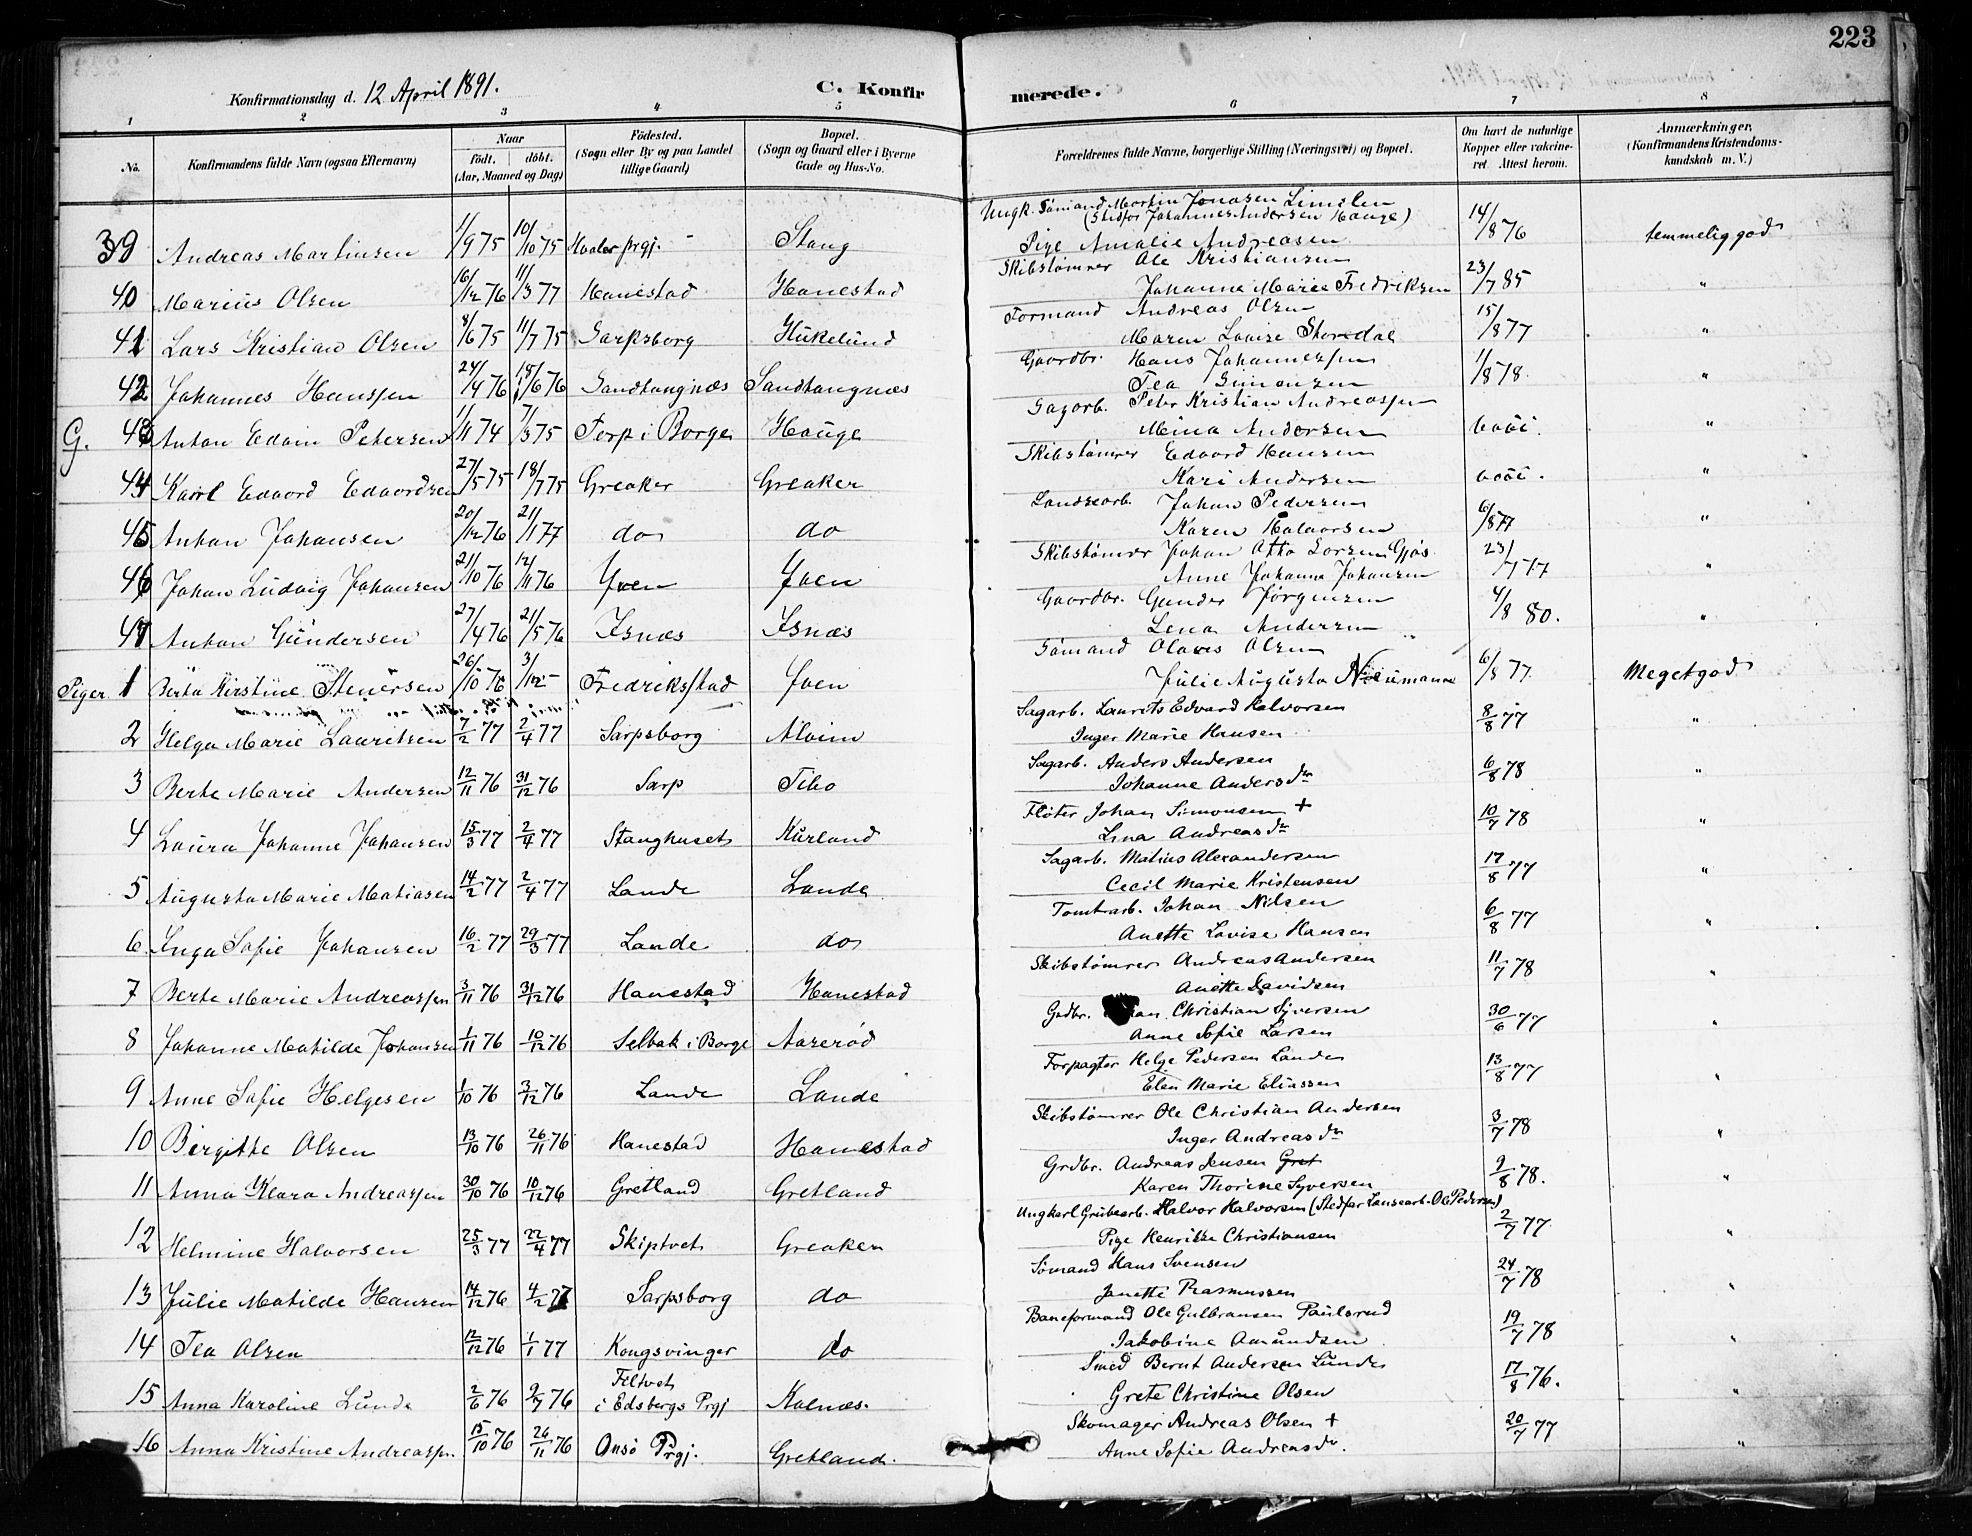 223
Konfirmationsdag d. 12 April 1891.
C. Konfirmerede.
1 2 3 4 5 6 7 8
No. Konfirmandens fulde Navn (ogsaa Efternavn) Naar født. døbt. (Aar, Maaned og Dag) Fødested. (Sogn eller By og paa Landet tillige Gaard) Bopæl. (Sogn og Gaard eller i Byerne Gade og Hus-No. Forældrenes fulde Navne, borgerlige Stilling (Næringsvei) og Bopæl. Om havt de naturlige Kopper eller vakcineret. Attest herom. Anmærkninger. (Konfirmandens Kristendomskundskab m. V.)
Ungk. Sømand Martin Jonasen
(Stedfar Johannes Andersen Hauge)
39 Andreas Martinsen 1/9 75 10/10 75 Hvaler prgj. Stang Pige Amalie Andreasen 14/8 76 temmelig god
Skibstømrer Ole Kristiansen
40 Marius Olsen 16/12 76 11/3 77 Hanestad Hanestad Johanne Marie Fredriksen 23/7 85 "
Formand Andreas Olsen
41 Lars Kristian Olsen 8/6 75 11/7 75 Sarpsborg Hukelund Maren Lovise Storedal 15/8 77 "
Gaardbr. Hans Johannessen
42 Johannes Hanssen 24/4 76 18/6 76 Sandtangnæs Sandtangnæs Tea Simensen 1/8 78. "
Sagarb. Peter Kristian Andreassen
G. 43 Anton Edvin Petersen 1/11 74 7/3 75 Torp i Borge Hauge Mina Andersen "
Skibstømrer Edvard Hansen
44 Karl Edvard Edvardsen 27/5 75 18/7 75 Greaker Greaker Kari Andersen "
Landsearb. Johan Pedersen
45 Anton Johansen 20/12 76 21/1 77 do do Karen Halvorsen 6/8 77 "
Skibstømrer Johan Otto Larsen Gjøs
46 Johan Ludvig Johansen 21/10 76 12/11 76 Yven Yven Anne Johanne Johansen 23/7 77 "
Gaardbr. Gunder Jørgensen
47 Anton Gundersen 27/4 76 21/5 76 Isnæs Isnæs Lena Andersen 4/8 80. "
Sømand Olaves Olsen
Piger 1 Berta Kirstine Stenersen 26/10 76 3/12 - Fredriksstad Yven Julie Augusta Nieumann 6/8 77. Meget god
Sagarb. Laurits Edvard Halvorsen
2 Helga Marie Lauritsen 7/2 77 2/4 77 Sarpsborg Alvim Inger Marie Hansen 8/8 77 "
Sagarb. Anders Andersen
3 Berte Marie Andersen 12/11 76 31/12 76 Sarp Tibo Johanne Andersdr 6/8 78 "
Fløter Johan Simonsen +
4 Laura Johanne Johansen 15/3 77 2/4 77 Stanghuset Kurland Lina Andreasdr 10/7 78 "
Sagarb. Matius Alexandersen
5 Augusta Marie Matiasen 14/2 77 2/4 77 Lande Lande Cecil Marie Kristensen 17/8 77 "
Tomtearb. Johan Nilsen
6 Inga Sofie Johansen 16/2 77 29/3 77 Lande do Anette Lovise Hansen 6/8 77 "
Skibstømrer Andreas Andersen
7 Berte Marie Andreassen 3/11 76 31/12 76 Hanestad Hanestad Anette Davidsen 11/7 78 "
Grdbr. Christian Syversen
8 Johanne Matilde Johansen 1/11 76 10/12 76 Selbak i Borge Aaserød Anne Sofie Larsen 30/6 77 "
Forpagter Helge Pedersen Lande
9 Anne Sofie Helgesen 1/10 76 3/12 76 Lande Lande Elen Marie Eliassen 13/8 77 "
Skibstømrer Ole Christian Andersen
10 Birgitte Olsen 13/10 76 26/11 76 Hanestad Hanestad Inger Andreasdr 3/7 78 "
Grdbr. Andreas Jensen Gret
11 Anna Klara Andreassen 30/10 76 10/12 76 Gretland Gretland Karen Thorine Syversen 9/8 78. "
Ungkarl Grubearb. Halvor Halvorsen (Stedfar Lansearb. Ole Pedersen)
12 Helmine Halvorsen 25/3 77 22/4 77 Skiptvet Greaker Pige Henrikke Christiansen 2/7 77 "
Sømand Hans Svensen
13 Julie Matilde Hansen 14/12 76 4/2 77 Sarpsborg do Janette Rasmussen 24/7 78 "
Baneformand Ole Gulbransen Paulsrud
14 Tea Olsen 12/12 76 1/1 77 Kongsvinger do Jakobine Amundsen 19/7 78 "
Smed Bernt Andersen Lunde
15 Anna Karoline Lunde 2/6 76 9/7 76 Filtvet i Edsbergs Prgj Kalnæs. Grete Christine Olsen 17/8 76. "
Skomager Andreas Olsen +
16 Anna Kristine Andreassen. 15/10 76 26/11 76 Onsø Prgj. Gretland. Anne Sofie Andreasdr. 20/7 77 "